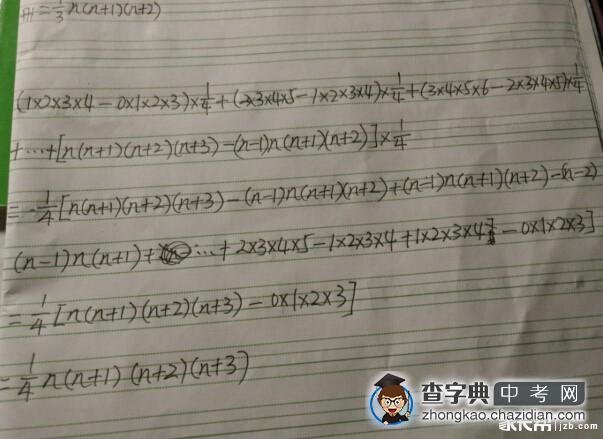 =1/3 n(n+1)(n+2)
(1×2×3×4-0×1×2×3)×1/4+(2×3×4×5-1×2×3×4)×1/4+(3×4×5×6-2×3×4×5)×1/4
+…+[n(n+1)(n+2)(n+3)-(n-1)n(n+1)(n+2)]×1/4
=1/4[n(n+1)(n+2)(n+3)-(n-1)n(n+1)(n+2)+(n-1)n(n+1)(n+2)-(n-2)
(n-1)n(n+1)+…+2×3×4×5-1×2×3×4+1×2×3×4-0×1×2×3]
=1/4[n(n+1)(n+2)(n+3)-0×1×2×3]
=1/4 n(n+1)(n+2)(n+3)
查字典 中考网
zhongkao.chazidian.com
家长帮 jzb.com